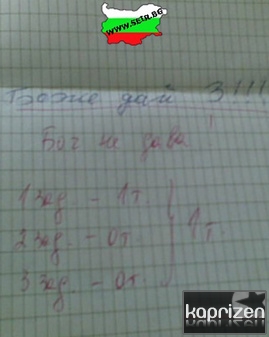 www.seta.BG
Боже дай 3!!!
Бог не дава!
1 зад. - 1т.
2 зад. - 0т.
3 зад. - 0т.
1т.
kaprizen